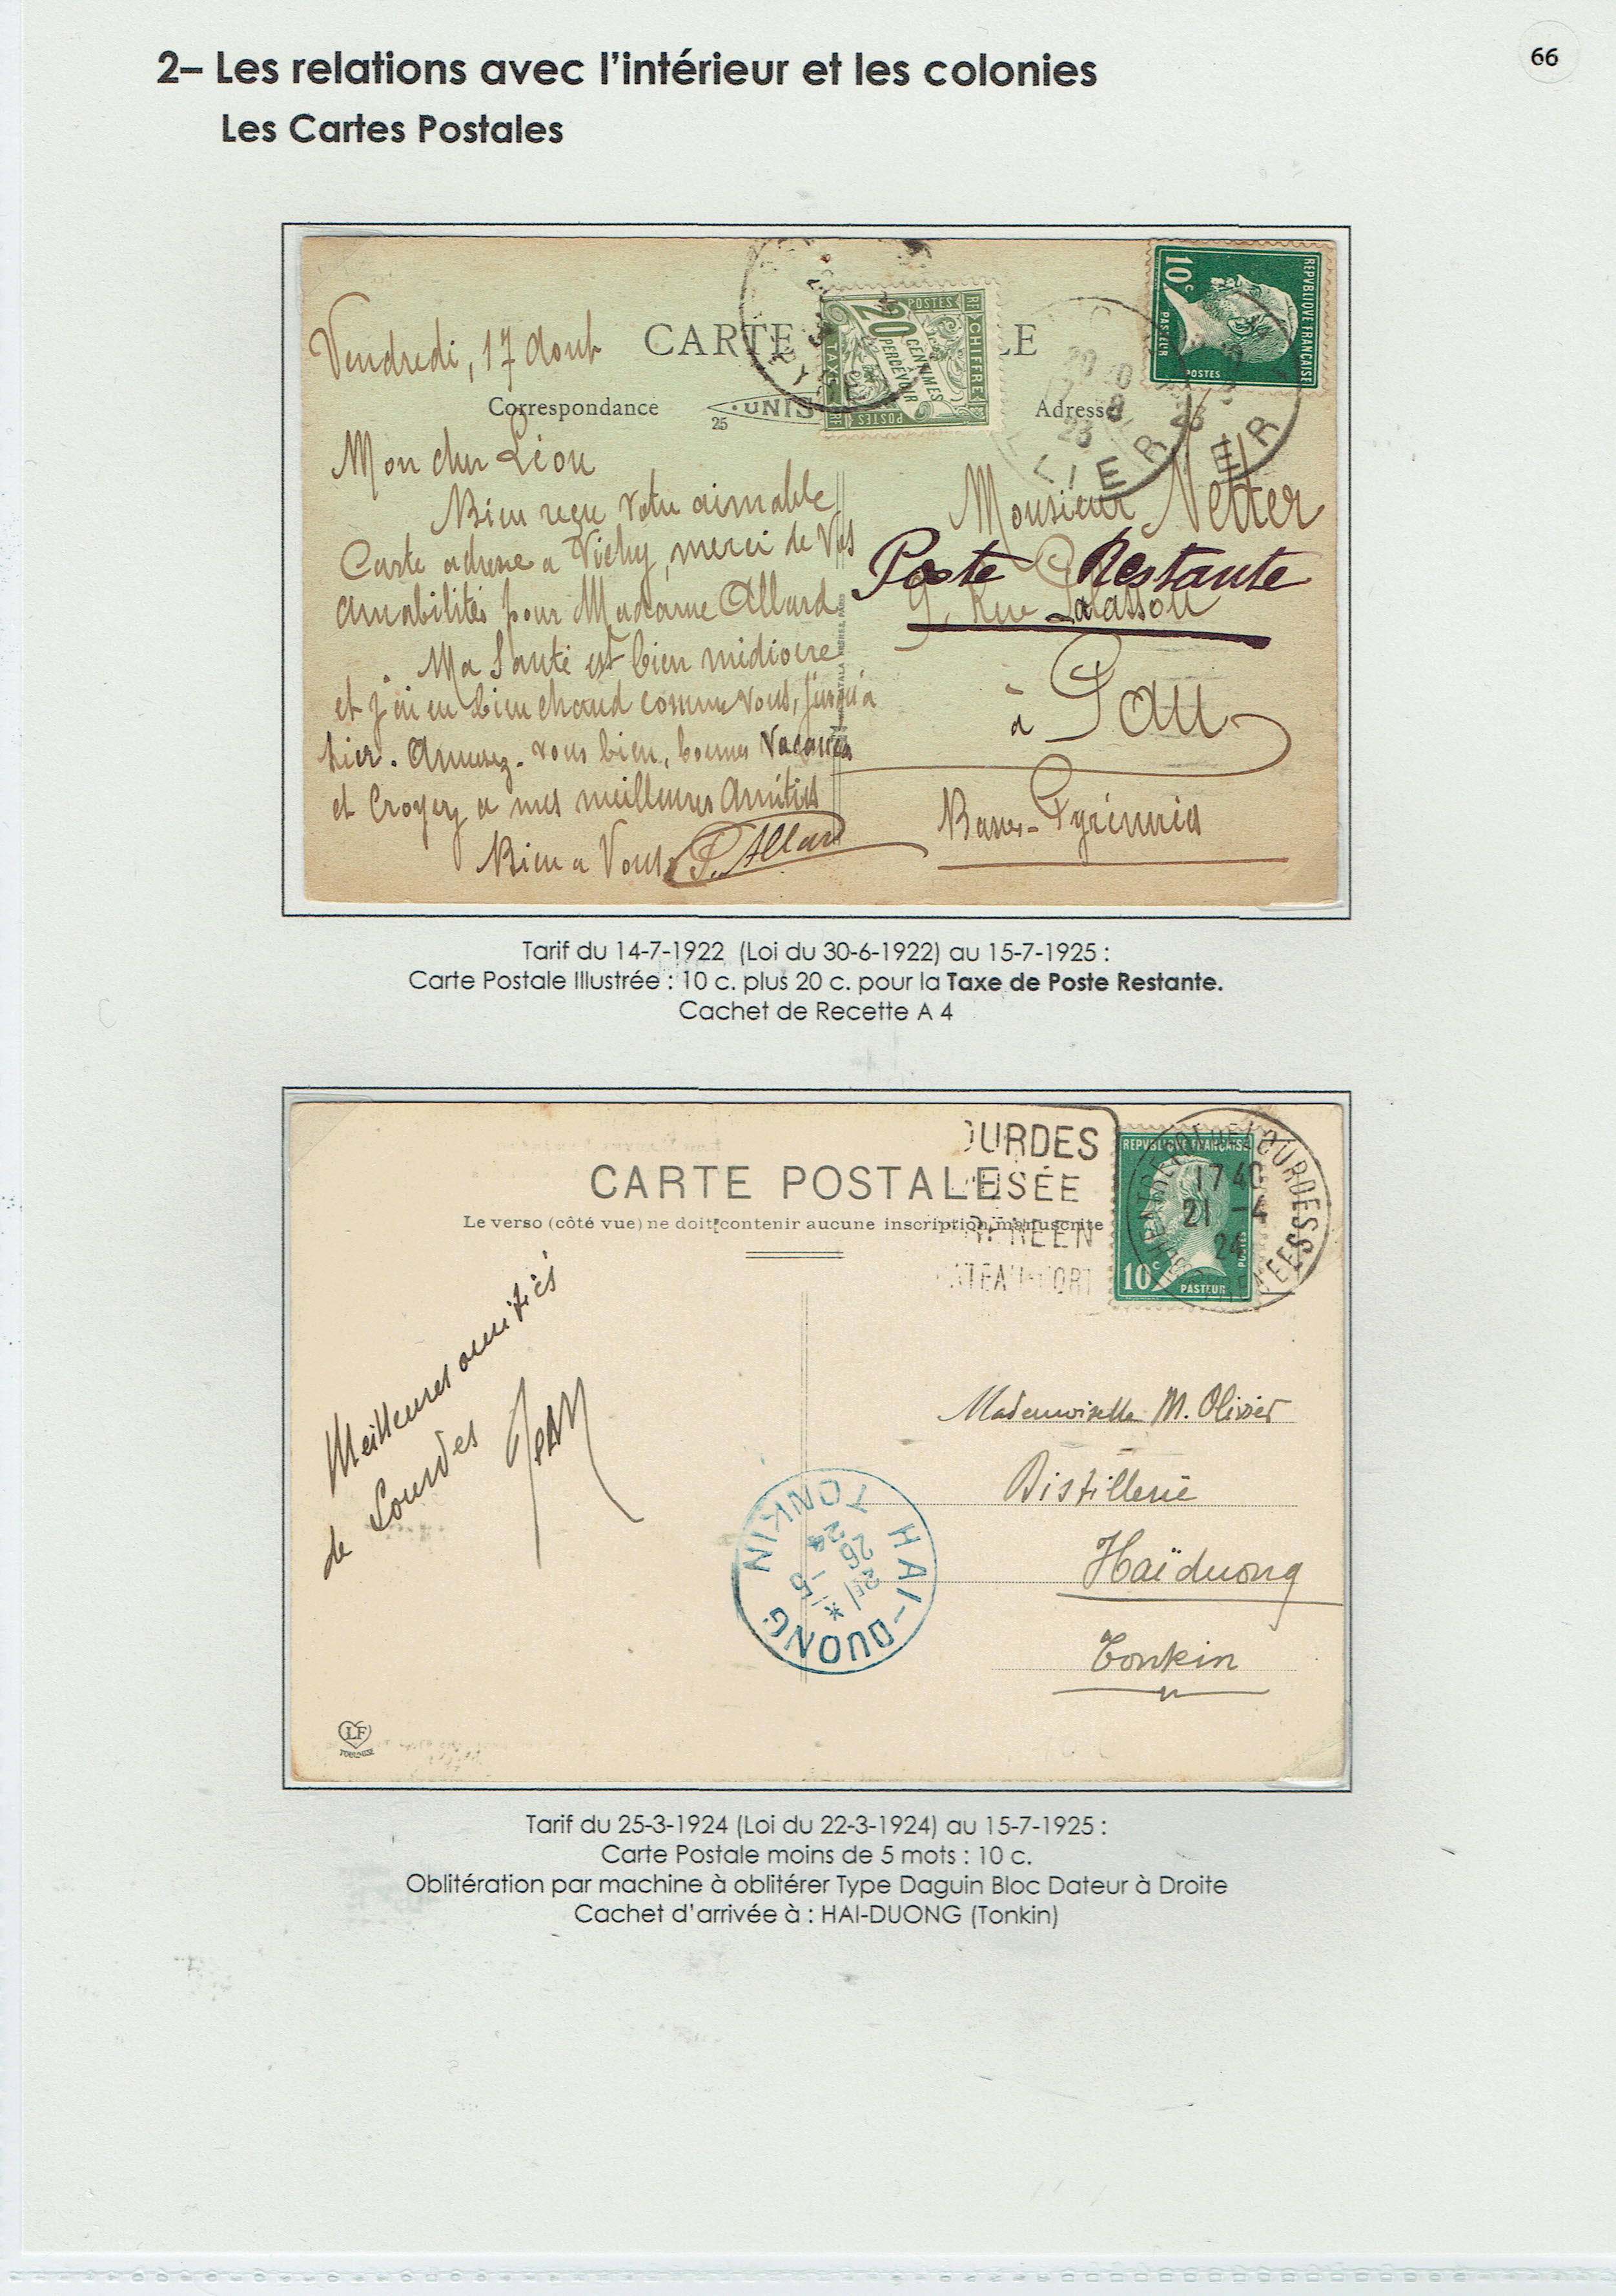 2– Les relations avec l'intérieur et les colonies
66
Les Cartes Postales
REPVBLIQVE FRANÇAISE
10c
PASTEUR
POSTES
POSTES
CHIFFRE
TAXE
RF
20
CENTIMES
À
PERCEVOIR
POSTES
RF
Vendredi, 17 Aout
CARTE LE
Correspondance
UNIS
25
Adresse
20 10
23
LIER
ER
Mon cher Léon
Bien reçu votre aimable
Carte adressée a Vichy, merci de Vos
amabilités pour Madame Allard.
Ma Santé est bien médiocre
et j'ai eu bien chaud comme vous, jusqu'a
hier. Amusez-vous bien, bonnes Vacances
et Croyez a mes meilleures Amitiés
Bien a Vous P. Allard
Monsieur Netter
Poste Restante
9, Rue
à Pau
Basses-Pyrénées
Tarif du 14-7-1922 (Loi du 30-6-1922) au 15-7-1925 :
Carte Postale Illustrée : 10 c. plus 20 c. pour la Taxe de Poste Restante.
Cachet de Recette A 4
OURDES
USÉE
RÉNÉEN
CARTE POSTALE
Le verso (côté vue) ne doit contenir aucune inscription manuscrite
REPVBLIQVE FRANÇAISE
10c
PASTEUR
LOURDES
17 40
21 -4
24
Meilleures amitiés
de Lourdes Jean
Mademoiselle M. Olivier
Distillerie
Haïduong
Tonkin
HAI-DUONG
TONKIN
26 -5
24
LF
Tarif du 25-3-1924 (Loi du 22-3-1924) au 15-7-1925 :
Carte Postale moins de 5 mots : 10 c.
Oblitération par machine à oblitérer Type Daguin Bloc Dateur à Droite
Cachet d'arrivée à : HAI-DUONG (Tonkin)